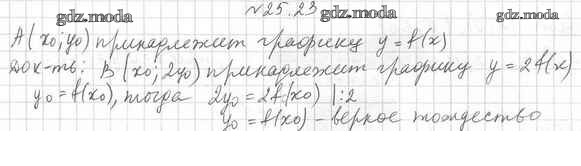 №25.23
gdz.moda gdz.moda gdz.moda
A(x₀; y₀) принадлежит графику y = f(x)
Док-ть: B(x₀; 2y₀) принадлежит графику y = 2f(x)
y₀ = f(x₀), тогда 2y₀ = 2f(x₀) |:2
y₀ = f(x₀) – верное тождество